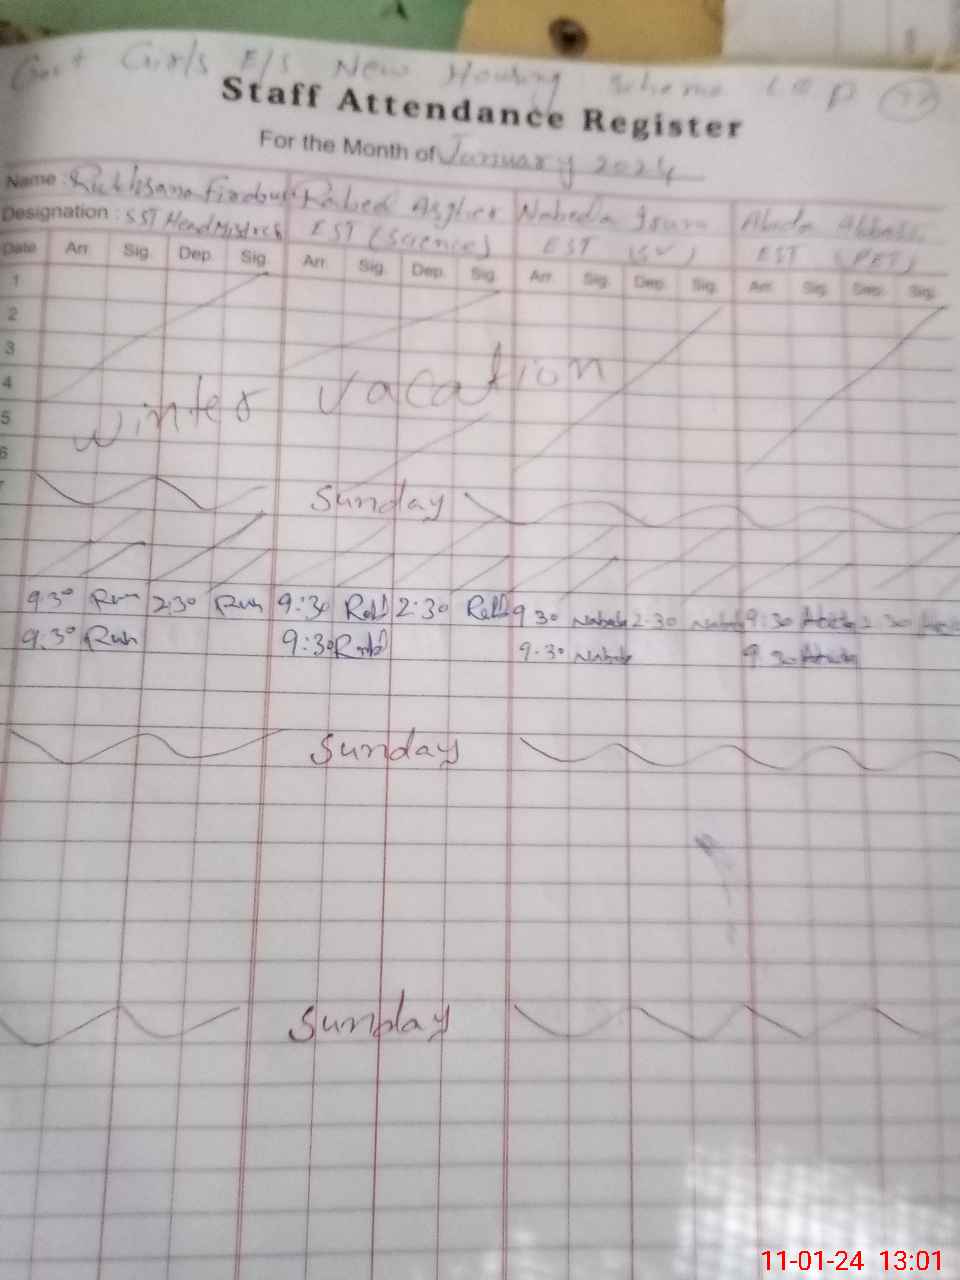 Govt Girls E/S New Housing Scheme
Staff Attendance Register
For the Month of January 2024
Name : Rukhsana Firdous Rabea Asgher Nabeela Abida Abbasi
Designation : SST Head Mistress EST (Science) EST EST (PET)
Date Arr. Sig. Dep. Sig. Arr. Sig. Dep. Sig. Arr. Sig. Dep. Sig. Arr. Sig. Dep. Sig.
1
2
3
4
winter vacation
5
6
7 Sunday
9:30 Run 2:30 Run 9:30 2:30 9:30 2:30 9:30 2:30
9:30 Run 9:30 9:30 9:30
Sunday
Sunday
11-01-24 13:01